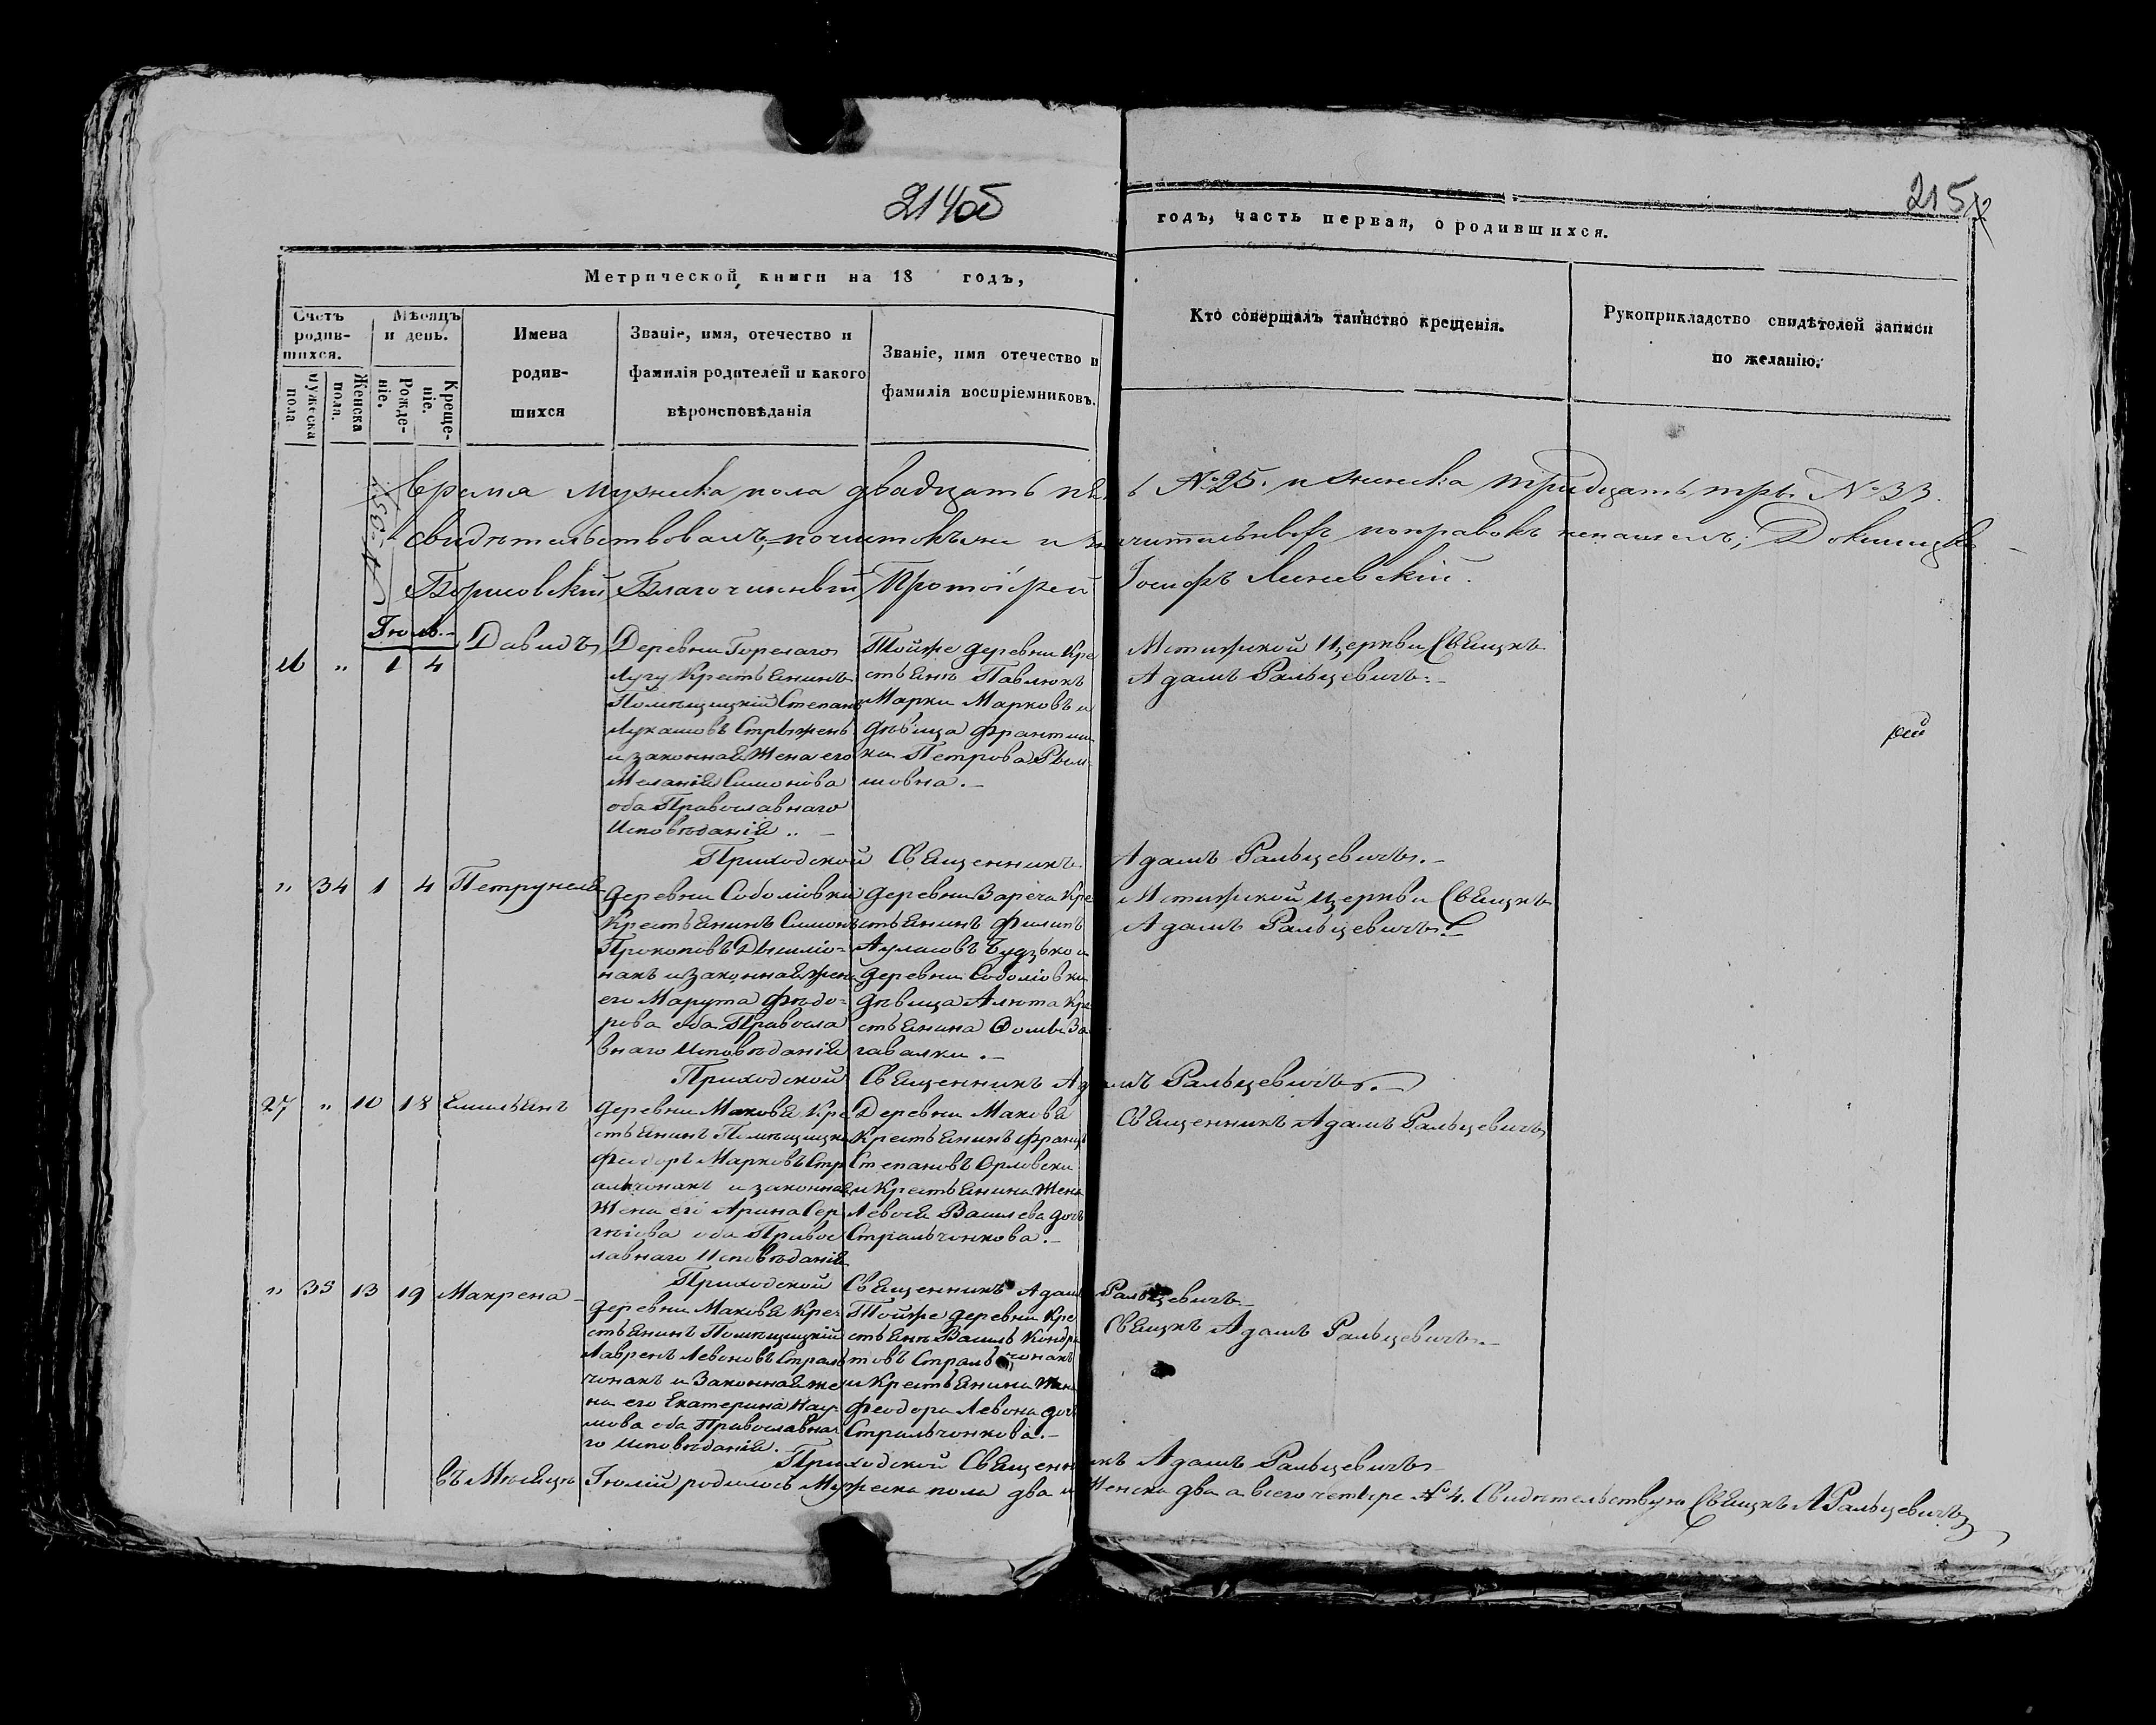 214об
215
Метрической книги на 18 годъ,
годъ, часть первая, о родившихся.
Счетъ родив-шихся.
Мужеска пола
Женска пола.
Мѣсяцъ и день.
Рожде-ніе.
Креще-ніе.
Имена
родив-
шихся
Званіе, имя, отечество и
фамилія родителей и какого
вѣроисповѣданія
Званіе, имя отечество и
фамилія воспріемниковъ.
Кто совершалъ таинство крещенія.
Рукоприкладство свидѣтелей записи
по желанію.
время мужеска пола двадцать пять №25. и женска тридцать три №33.
свидѣтельствовалъ, и значительныхъ поправокъ ненашелъ; Докшицко
Борисовскій Благочинный Протоіерей Іосифъ
Іюль.
" 1 4 Давидъ
Деревни Горелаго
Лугу Крестьянинъ
Помѣщицкій Степанъ
Лукашовъ Стрыжень
и законная Жена его
Меланія Симонова
оба Православнаго
Исповѣданія
Тойже деревни Кре
стьянъ Павлюкъ
Марки Марковъ и
дѣвица Франтиш
ка Петрова
шовна.
Мстижской Церкви Свящнъ
Адамъ Ральцевичъ.
Приходской Священникъ Адамъ Ральцевичъ.
" 34 1 4 Петрунеля
деревни Соболіовки
Крестьянинъ Симонъ
Прокоповъ
накъ и законная жена
его Марута Фѣдо-
рова оба Правосла
внаго Исповѣданія
деревни Заречи Кре
стьянинъ Филипъ
Будзько и
деревни Соболіовки
дѣвица Алюта Кре
стьянина Фомы За
гавалки.
Мстижской Церкви Свящнъ
Адамъ Ральцевичъ.
Приходской Священникъ Адамъ Ральцевичъ.
27 " 10 18 Емильянъ
деревни Маковя Кре
стьянинъ Помѣщицкій
Феодоръ Марковъ Стр
альчонакъ и законная
Жена его Арина Сер
гѣіова оба Правос
лавнаго Исповѣданія
Деревни Маковя
Крестьянинъ Францъ
Степановъ Орловски
и Крестьянина Жена
Левося Васильева дочь
Стральчонкова.
Священникъ Адамъ Ральцевичъ
Приходской Священникъ Адамъ Ральцевичъ
" 35 13 19 Макрена
деревни Маковя Кре
стьянинъ Помѣщицкій
Лавренъ Левоновъ Страль
чонакъ и Законная же
на его Екатерина Нау-
мова оба Православна
го Исповѣданія.
Тойже деревни Кре
стьянъ Василь Кондра
товъ Стральчонакъ
и Крестьянина Жена
Феодора Левона дочь
Стральчонкова.
Свящнъ Адамъ Ральцевичъ
Приходской Священникъ Адамъ Ральцевичъ
Въ Мѣсяцѣ Іюлій родилось Мужеска пола два и Женска два а всего четыре №4. Свидѣтельствую Свящнъ А Ральцевичъ